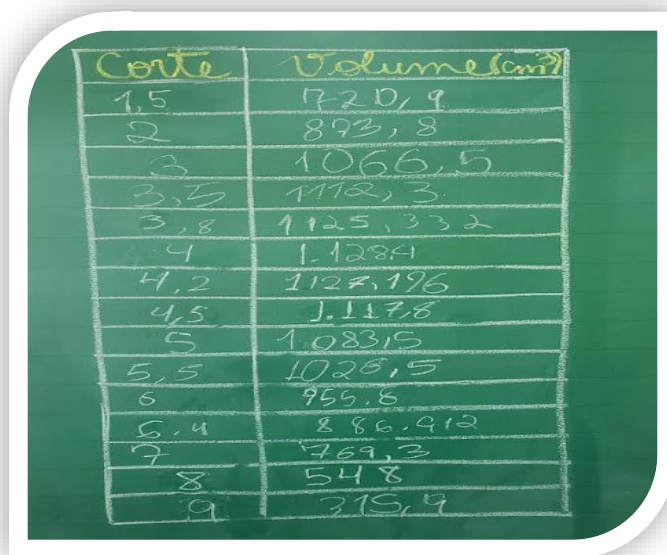 Corte Volume (cm³)
1,5 720,9
2 893,8
3 1066,5
3,5 1112,3
3,8 1125,332
4 1.128,4
4,2 1127,196
4,5 1.117,8
5 1.083,5
5,5 1028,5
6 955.8
6.4 886.912
7 769,3
8 548
9 315,9